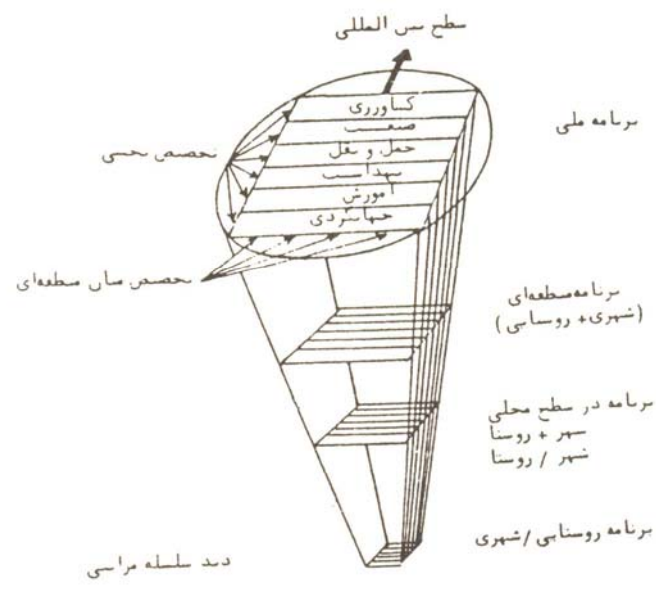 سطح بین المللی
کشاورزی
صنعت
حمل و نقل
بهداشت
آموزش
جهانگردی
برنامه ملی
تخصیص بخشی
تخصیص میان منطقه‌ای
برنامه منطقه‌ای
(شهری + روستایی)
برنامه در سطح محلی
شهر + روستا
شهر / روستا
برنامه روستایی / شهری
دید سلسله مراتبی